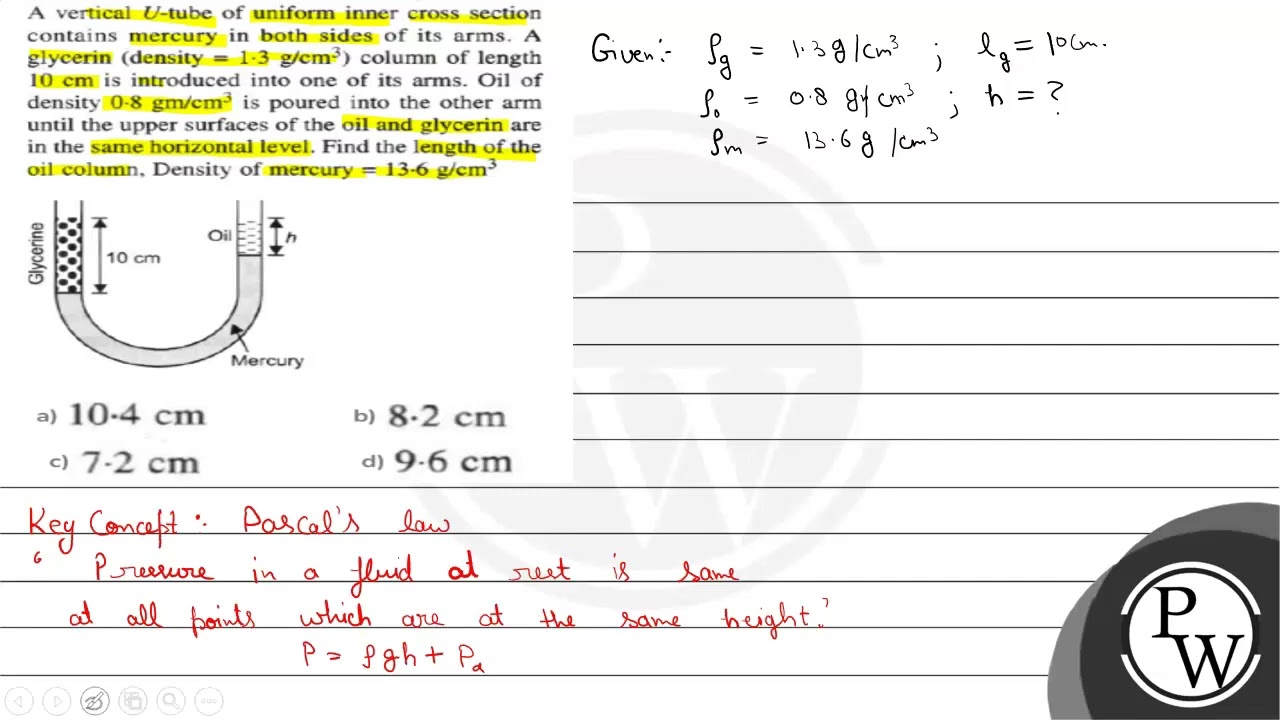 A vertical U-tube of uniform inner cross section
contains mercury in both sides of its arms. A
glycerin (density = 1·3 g/cm³) column of length
10 cm is introduced into one of its arms. Oil of
density 0·8 gm/cm³ is poured into the other arm
until the upper surfaces of the oil and glycerin are
in the same horizontal level. Find the length of the
oil column, Density of mercury = 13·6 g/cm³
Given:- ρg = 1.3 g/cm³ ; lg = 10cm.
ρo = 0.8 g/cm³ ; h = ?
ρm = 13.6 g /cm³
Glycerine
10 cm
Oil
h
Mercury
a) 10·4 cm
b) 8·2 cm
c) 7·2 cm
d) 9·6 cm
Key Concept:- Pascal's law
" Pressure in a fluid at rest is same
at all points which are at the same height."
P = ρgh + Pa
P
W
P
W